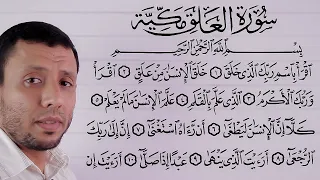 سُورَةُ الْعَلَقِ مَكِّيَّة
بِسْمِ اللَّهِ الرَّحْمَٰنِ الرَّحِيمِ
ٱقْرَأْ بِٱسْمِ رَبِّكَ ٱلَّذِى خَلَقَ ۝ خَلَقَ ٱلْإِنسَٰنَ مِنْ عَلَقٍ ۝ ٱقْرَأْ
وَرَبُّكَ ٱلْأَكْرَمُ ۝ ٱلَّذِى عَلَّمَ بِٱلْقَلَمِ ۝ عَلَّمَ ٱلْإِنسَٰنَ مَا لَمْ يَعْلَمْ
كَلَّآ إِنَّ ٱلْإِنسَٰنَ لَيَطْغَىٰٓ ۝ أَن رَّءَاهُ ٱسْتَغْنَىٰٓ ۝ إِنَّ إِلَىٰ رَبِّكَ
ٱلرُّجْعَىٰٓ ۝ أَرَءَيْتَ ٱلَّذِى يَنْهَىٰ ۝ عَبْدًا إِذَا صَلَّىٰٓ ۝ أَرَءَيْتَ إِن